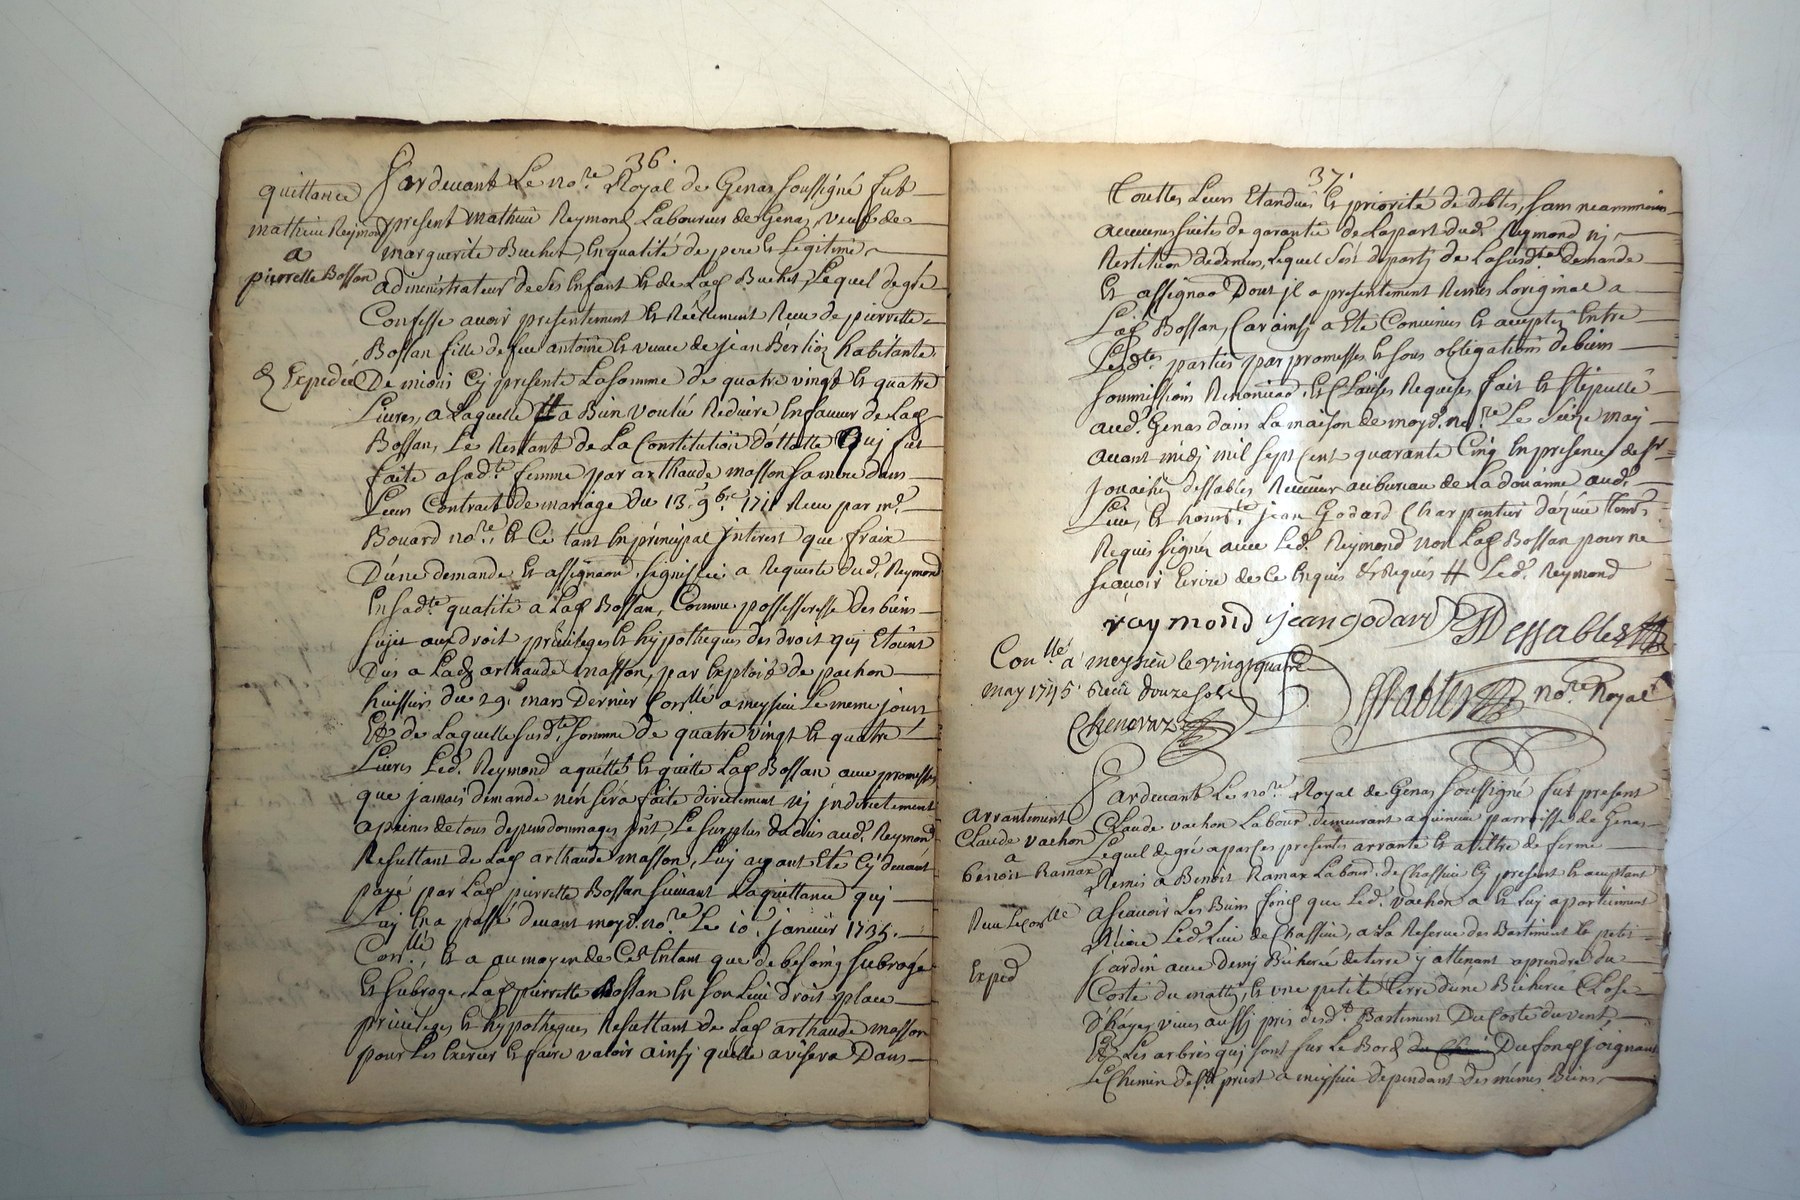 36.
quittance
mathieu Reymond
a
pierrette Bossan
Expediée
Pardevant Le no.re Royal de Genas soussigné fut
present mathieu Reymond Laboureur de Genas, veuf de
marguerite Buchet, En qualité de pere et Legitime
administrateur de ses Enfant et de Lad Buchet, Lequel de gré
Confesse avoir presentement et Réélement Reçu de pierrette
Bossan fille de feu antoine et veuve de jean Berlioz habitante
De mions Cy presente La somme de quatre vingt et quatre
Livres, a Laquelle Il a Bien voulu Reduire En faveur de Lad
Bossan, Le Restant de La Constitution dottalle Qui fut
faite a sad.te femme par arthaude masson sa mere dans
Leur Contract de mariage du 13. 9.bre 1711 Reçu par m.e
Bouard no.re, Et Ce tant En principal jnterest que fraix
D'une demande Et assignaon signiffiée a Requeste dud. Reymond
En sad.te qualité a Lad Bossan, Comme possesseresse des biens
sujet aux droit privileges et hypotheques des droit quj Etoient
Dus a Lad arthaude masson, par Exploit de pachon
huissier du 29. mars Dernier Conllé a meysieu Le meme jour
Et de Laquelle susd.te somme de quatre vingt et quatre
Livres Led. Reymond a quitté et quitte Lad Bossan avec promesse
que jamais demande n'en sera faite directement nj jndirectement
a peines de tous depens dommages Le surplus dudus aud. Reymond
Resultant de Lad arthaude masson, Luy ayant Eté Cy devant
payé par Lad pierrette Bossan suivant La quittance quj
Luy En a passé devant moyd. no.re Le 10. janvier 1735.
Con.llé, Et a au moyen de Ce En tant que de besoing subrogé
Et subroge, Lad pierrette Bossan En son Lieu droit place
privileges et hypotheques Resultant de Lad arthaude masson
pour Les Exercer Et faire valoir ainsj quelle avisera Dans
37.
touttes Leurs Etandues et priorité de debtes, sans neammoins
aucunes suites de garantie de La part dud. Reymond nj
Restitution de deniers, Lequel s'est departj de La susd.te demande
Et assignaon Dont jl a presentement Remis Loriginal a
Lad Bossan, Car ainsj a Eté Convenu et accepté Entre
Lesd.tes parties par promesses et sous obligations de biens
sommissions Renonciaons, Et Clauses Requises, fait et stipullé
aud. Genas dans La maison de moyd. no.re Le seize may
avant midj mil sept Cent quarante Cinq En presence de sr
jouachin dessables Receveur au bureau de La douanne aud.
Lieu, et honn.te jean Godard Charpentier d'azieu temoins
Requis signés avec Led. Reymond non Lad Bossan pour ne
sçavoir Ecrire de Ce Enquis et Requis Led. Reymond
raymond jean godard JDessables
Con.llé a meysieu le vingtquatre
may 1745 Reçu douze sols
Chenavaz
Dessables no.re Royal
arrantement
Claude vachon
a
benoit Ramax
Expéd
Pardevant Le no.re Royal de Genas soussigné fut present
Claude vachon Labour. demeurant a quincieu parroisse de Genas
Lequel de gré a par ses presentes arranté et a tittre de ferme
Remis a Benoit Ramax Labour. de Chassieu Cy present et acceptant
a scavoir Les Biens fonds que Led. vachon a et Luy apartiennent
Riere Led. Lieu de Chassieu, a La Reserve des Bastiment Et petit
jardin avec Demy Bicherée de terre y attenant a prendre du
Costé du matin, et une petite terre d'une Bicherée Close
d'hayes vives aussj près desd.t Bastiment Du Costé du vent
Et Les arbres quj sont sur Le Bord Du fond joignant
Le Chemin de st priest a meysieu dependant des mémes Biens